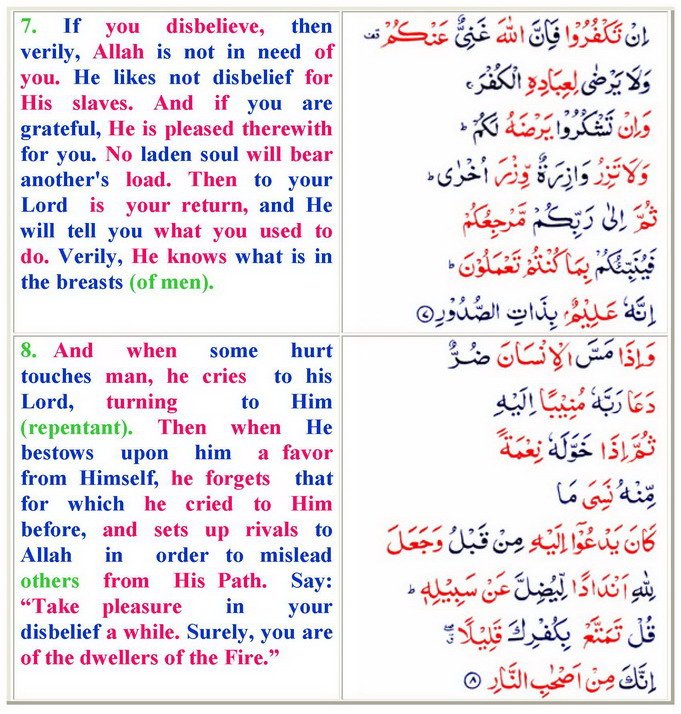 7. If you disbelieve, then
verily, Allah is not in need of
you. He likes not disbelief for
His slaves. And if you are
grateful, He is pleased therewith
for you. No laden soul will bear
another's load. Then to your
Lord is your return, and He
will tell you what you used to
do. Verily, He knows what is in
the breasts (of men).
اِنْ تَكْفُرُوْا فَاِنَّ اللّٰهَ غَنِیٌّ عَنْكُمْ قف
وَلَا یَرْضٰی لِعِبَادِهِ الْكُفْرَ ۚ
وَاِنْ تَشْكُرُوْا یَرْضَهُ لَكُمْ ؕ
وَلَا تَزِرُ وَازِرَةٌ وِّزْرَ اُخْرٰی ؕ
ثُمَّ اِلٰی رَبِّكُمْ مَّرْجِعُكُمْ
فَیُنَبِّئُكُمْ بِمَا كُنْتُمْ تَعْمَلُوْنَ ؕ
اِنَّهٗ عَلِیْمٌۢ بِذَاتِ الصُّدُوْرِ ۝۷
8. And when some hurt
touches man, he cries to his
Lord, turning to Him
(repentant). Then when He
bestows upon him a favor
from Himself, he forgets that
for which he cried to Him
before, and sets up rivals to
Allah in order to mislead
others from His Path. Say:
“Take pleasure in your
disbelief a while. Surely, you are
of the dwellers of the Fire.”
وَاِذَا مَسَّ الْاِنْسَانَ ضُرٌّ
دَعَا رَبَّهٗ مُنِیْبًا اِلَیْهِ
ثُمَّ اِذَا خَوَّلَهٗ نِعْمَةً
مِّنْهُ نَسِیَ مَا
كَانَ یَدْعُوْۤا اِلَیْهِ مِنْ قَبْلُ وَجَعَلَ
لِلّٰهِ اَنْدَادًا لِّیُضِلَّ عَنْ سَبِیْلِهٖ ؕ
قُلْ تَمَتَّعْ بِكُفْرِكَ قَلِیْلًا
اِنَّكَ مِنْ اَصْحٰبِ النَّارِ ۝۸